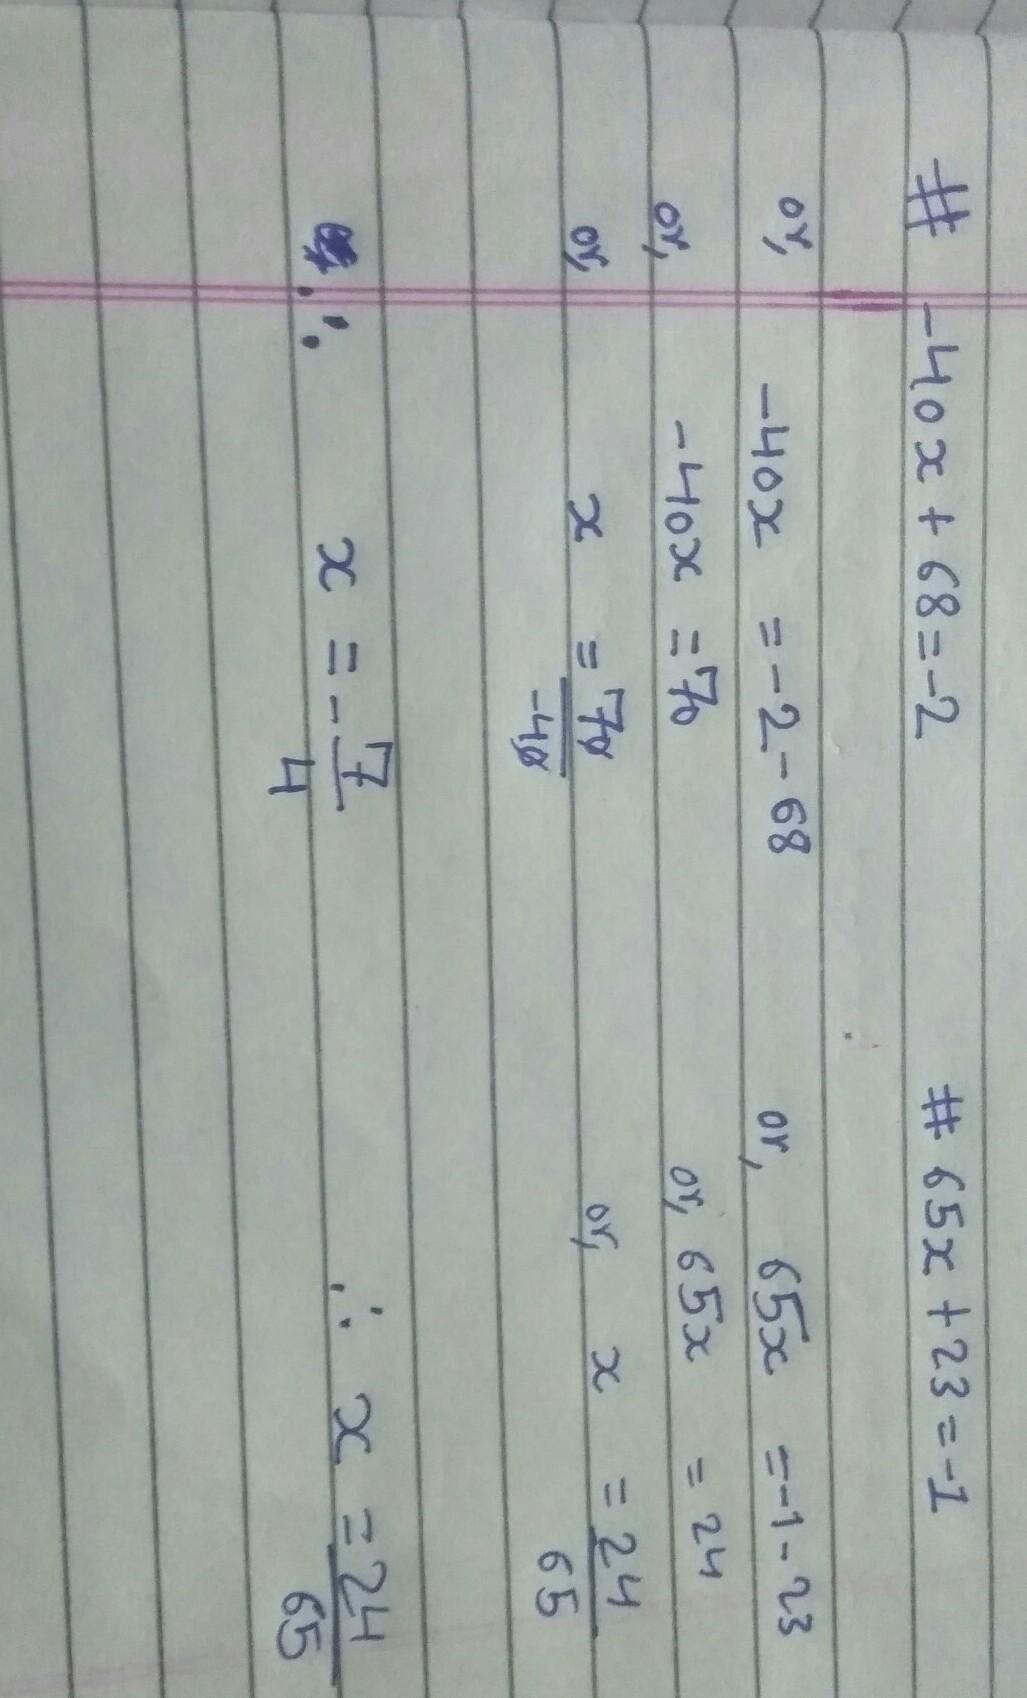 # -40x + 68 = -2
or, -40x = -2 - 68
or, -40x = 70
or, x = 70/-40
∴ x = -7/4
# 65x + 23 = -1
or, 65x = -1 - 23
or, 65x = 24
or, x = 24/65
∴ x = 24/65